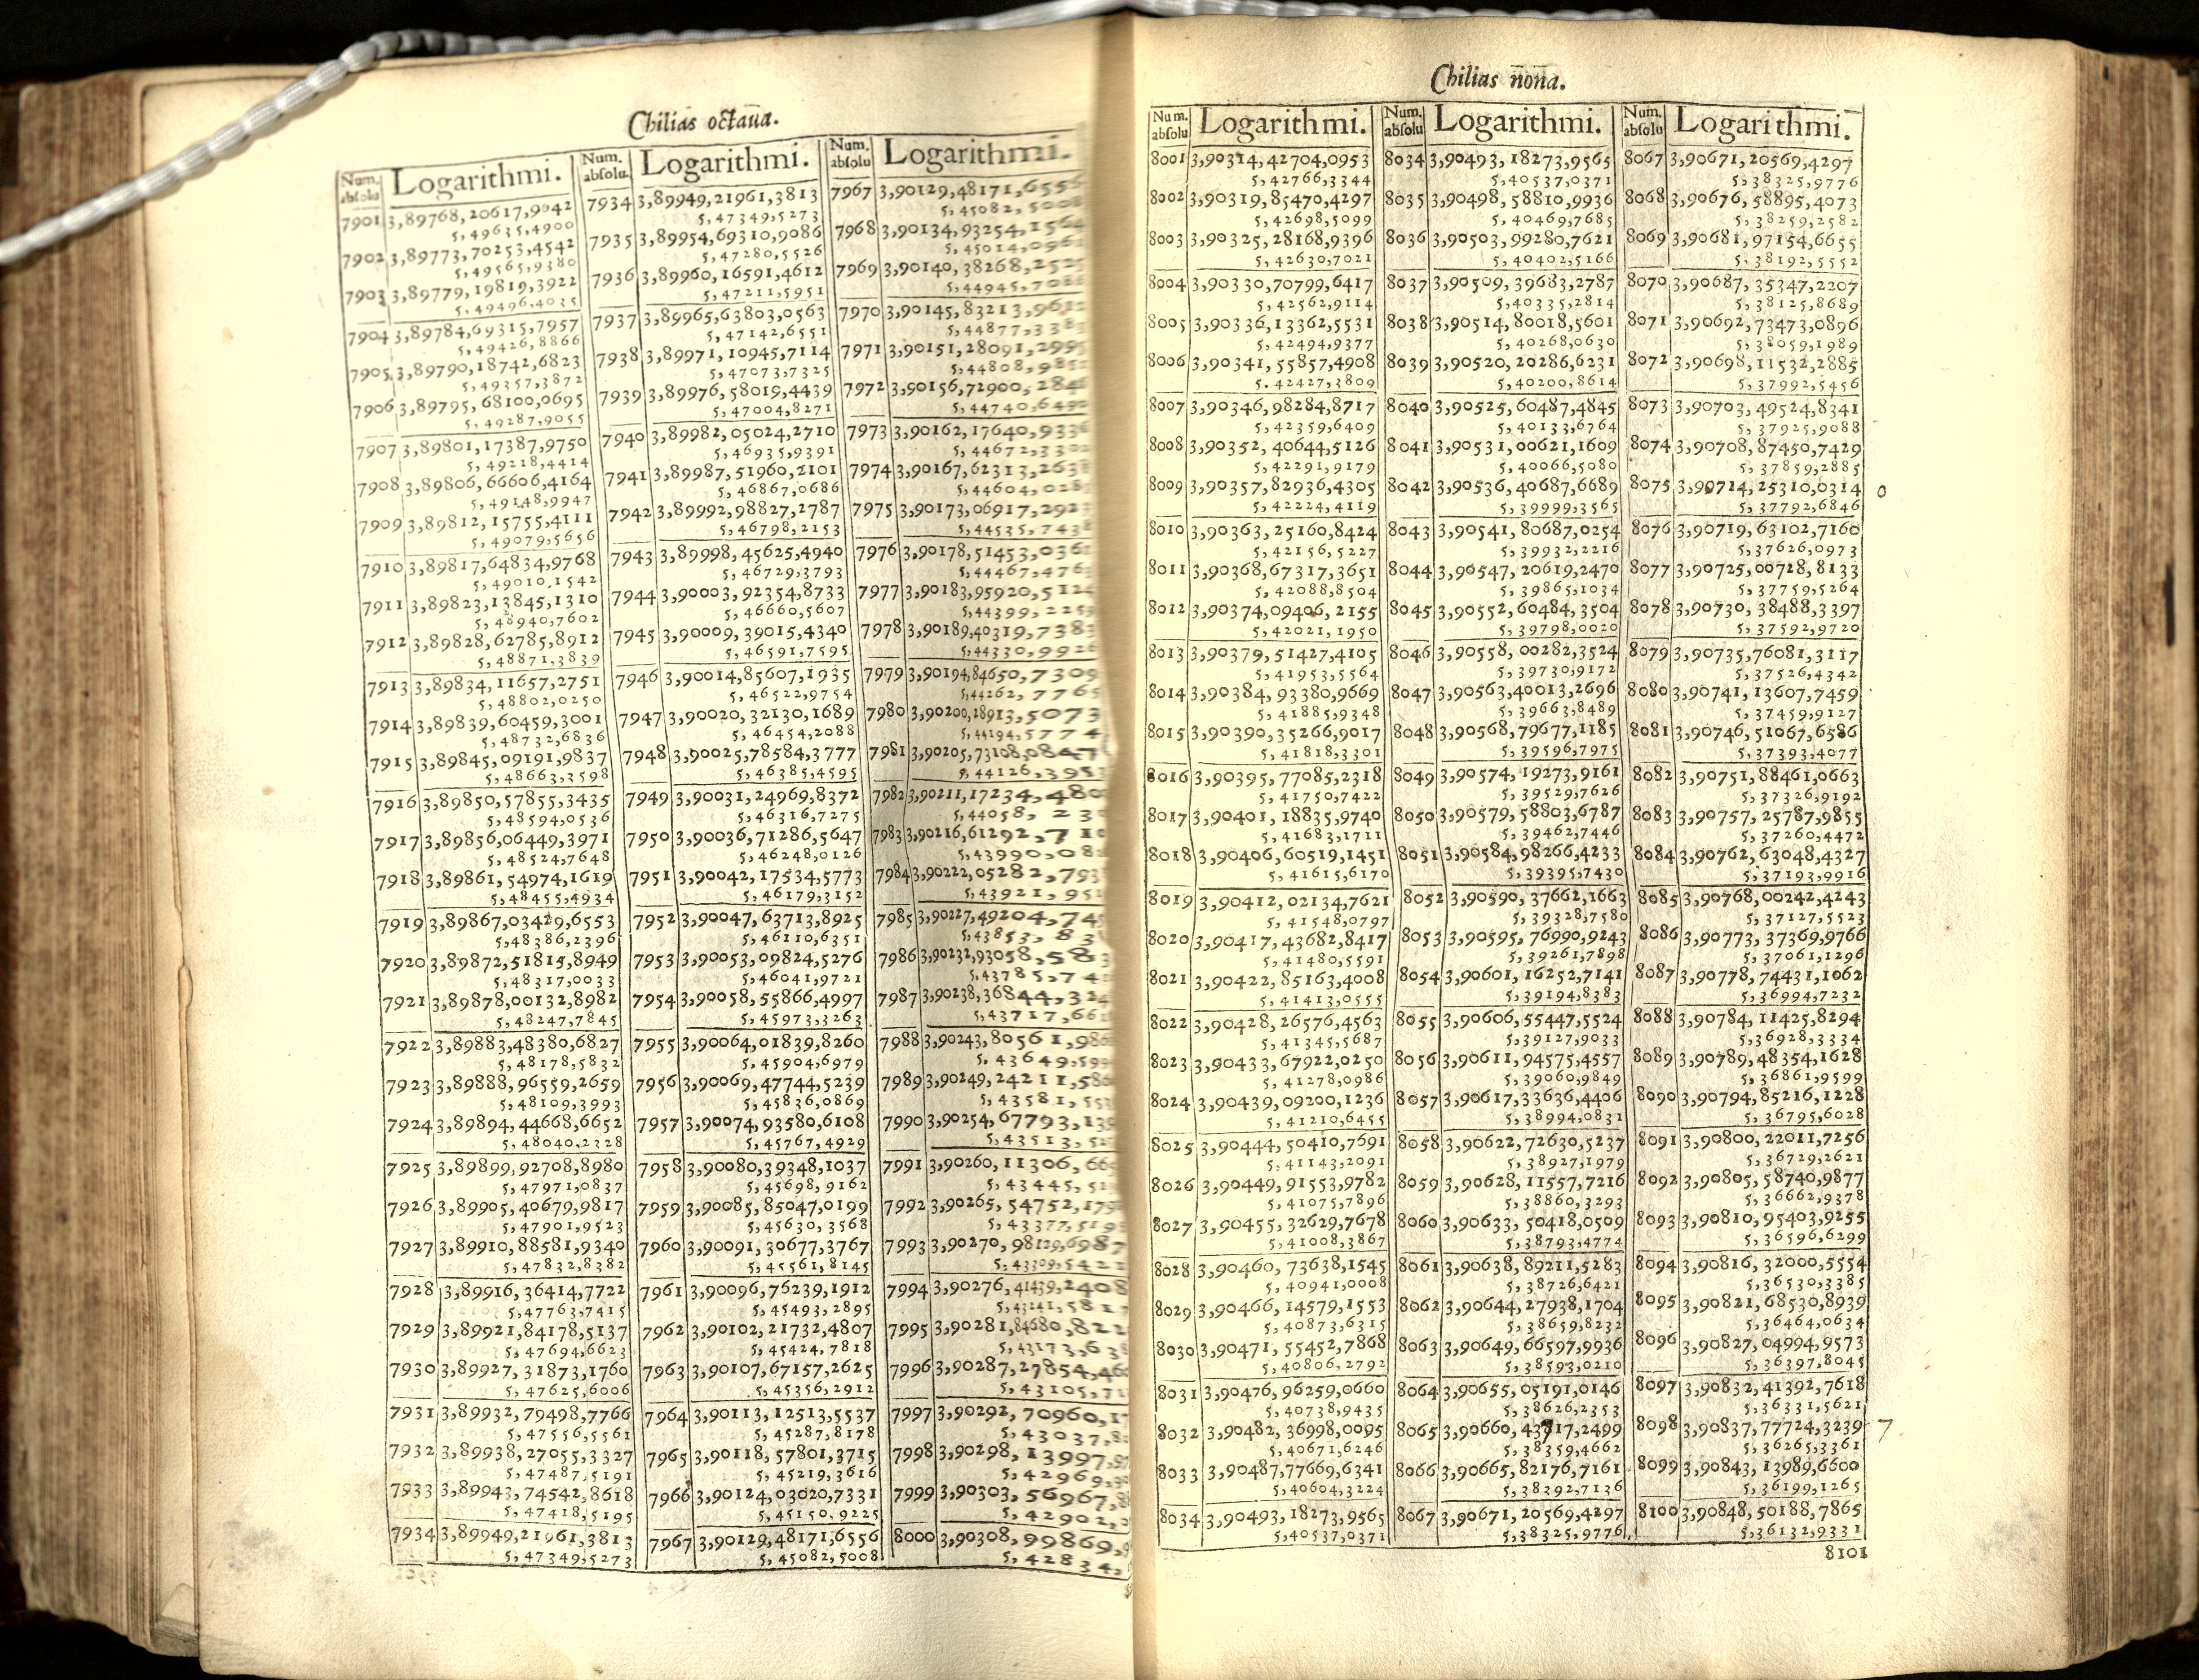 Chilias octaua.
Num. absolu
Logarithmi.
7901 3,89768,20617,9042
5,49635,4900
7902 3,89773,70253,4542
5,49565,9380
7903 3,89779,19819,3922
5,49496,4035
7904 3,89784,69315,7957
5,49426,8866
7905 3,89790,18742,6823
5,49357,3872
7906 3,89795,68100,0695
5,49287,9055
7907 3,89801,17387,9750
5,49218,4414
7908 3,89806,66606,4164
5,49148,9947
7909 3,89812,15755,4111
5,49079,5656
7910 3,89817,64834,9768
5,49010,1542
7911 3,89823,13845,1310
5,48940,7602
7912 3,89828,62785,8912
5,48871,3839
7913 3,89834,11657,2751
5,48802,0250
7914 3,89839,60459,3001
5,48732,6836
7915 3,89845,09191,9837
5,48663,3598
7916 3,89850,57855,3435
5,48594,0536
7917 3,89856,06449,3971
5,48524,7648
7918 3,89861,54974,1619
5,48455,4934
7919 3,89867,03429,6553
5,48386,2396
7920 3,89872,51815,8949
5,48317,0033
7921 3,89878,00132,8982
5,48247,7845
7922 3,89883,48380,6827
5,48178,5832
7923 3,89888,96559,2659
5,48109,3993
7924 3,89894,44668,6652
5,48040,2328
7925 3,89899,92708,8980
5,47971,0837
7926 3,89905,40679,9817
5,47901,9523
7927 3,89910,88581,9340
5,47832,8382
7928 3,89916,36414,7722
5,47763,7415
7929 3,89921,84178,5137
5,47694,6623
7930 3,89927,31873,1760
5,47625,6006
7931 3,89932,79498,7766
5,47556,5561
7932 3,89938,27055,3327
5,47487,5191
7933 3,89943,74542,8618
5,47418,5195
7934 3,89949,21961,3813
5,47349,5273
Num. absolu.
Logarithmi.
7934 3,89949,21961,3813
5,47349,5273
7935 3,89954,69310,9086
5,47280,5526
7936 3,89960,16591,4612
5,47211,5951
7937 3,89965,63803,0563
5,47142,6551
7938 3,89971,10945,7114
5,47073,7325
7939 3,89976,58019,4439
5,47004,8271
7940 3,89982,05024,2710
5,46935,9391
7941 3,89987,51960,2101
5,46867,0686
7942 3,89992,98827,2787
5,46798,2153
7943 3,89998,45625,4940
5,46729,3793
7944 3,90003,92354,8733
5,46660,5607
7945 3,90009,39015,4340
5,46591,7595
7946 3,90014,85607,1935
5,46522,9754
7947 3,90020,32130,1689
5,46454,2088
7948 3,90025,78584,3777
5,46385,4595
7949 3,90031,24969,8372
5,46316,7275
7950 3,90036,71286,5647
5,46248,0126
7951 3,90042,17534,5773
5,46179,3152
7952 3,90047,63713,8925
5,46110,6351
7953 3,90053,09824,5276
5,46041,9721
7954 3,90058,55866,4997
5,45973,3263
7955 3,90064,01839,8260
5,45904,6979
7956 3,90069,47744,5239
5,45836,0869
7957 3,90074,93580,6108
5,45767,4929
7958 3,90080,39348,1037
5,45698,9162
7959 3,90085,85047,0199
5,45630,3568
7960 3,90091,30677,3767
5,45561,8145
7961 3,90096,76239,1912
5,45493,2895
7962 3,90102,21732,4807
5,45424,7818
7963 3,90107,67157,2625
5,45356,2912
7964 3,90113,12513,5537
5,45287,8178
7965 3,90118,57801,3715
5,45219,3616
7966 3,90124,03020,7331
5,45150,9225
7967 3,90129,48171,6556
5,45082,5008
Num. absolu
Logarithmi.
7967 3,90129,48171,6556
5,45082,5008
7968 3,90134,93254,1564
5,45014,0961
7969 3,90140,38268,2525
5,44945,7088
7970 3,90145,83213,9612
5,44877,3383
7971 3,90151,28091,2995
5,44808,9852
7972 3,90156,72900,2846
5,44740,6490
7973 3,90162,17640,9336
5,44672,3302
7974 3,90167,62313,2638
5,44604,0285
7975 3,90173,06917,2923
5,44535,7438
7976 3,90178,51453,0361
5,44467,4763
7977 3,90183,95920,5124
5,44399,2259
7978 3,90189,40319,7383
5,44330,9926
7979 3,90194,84650,7309
5,44262,7765
7980 3,90200,28913,5073
5,44194,5774
7981 3,90205,73108,0847
5,44126,3953
7982 3,90211,17234,480
5,44058,
7983 3,90216,61292,710
5,43990,08
7984 3,90222,05282,793
5,43921,951
7985 3,90227,49204,745
5,43853,83
7986 3,90232,93058,583
5,43785,74
7987 3,90238,36844,324
5,43717,661
7988 3,90243,80561,986
5,43649,599
7989 3,90249,24211,586
5,43581,553
7990 3,90254,67793,139
5,43513,52
7991 3,90260,11306,66
5,43445,51
7992 3,90265,54752,179
5,43377,519
7993 3,90270,98129,6987
5,43309,5422
7994 3,90276,41439,2408
5,43241,581
7995 3,90281,84680,822
5,43173,63
7996 3,90287,27854,460
5,43105,71
7997 3,90292,70960,17
5,43037,80
7998 3,90298,13997,97
5,42969,90
7999 3,90303,56967,8
5,42902,
8000 3,90308,99869,
5,42834,
Chilias nona.
Num. absolu
Logarithmi.
8001 3,90314,42704,0953
5,42766,3344
8002 3,90319,85470,4297
5,42698,5099
8003 3,90325,28168,9396
5,42630,7021
8004 3,90330,70799,6417
5,42562,9114
8005 3,90336,13362,5531
5,42494,9377
8006 3,90341,55857,4908
5.42427,3809
8007 3,90346,98284,8717
5,42359,6409
8008 3,90352,40644,5126
5,42291,9179
8009 3,90357,82936,4305
5,42224,4119
8010 3,90363,25160,8424
5,42156,5227
8011 3,90368,67317,3651
5,42088,8504
8012 3,90374,09406,2155
5,42021,1950
8013 3,90379,51427,4105
5,41953,5564
8014 3,90384,93380,9669
5,41885,9348
8015 3,90390,35266,9017
5,41818,3301
8016 3,90395,77085,2318
5,41750,7422
8017 3,90401,18835,9740
5,41683,1711
8018 3,90406,60519,1451
5,41615,6170
8019 3,90412,02134,7621
5,41548,0797
8020 3,90417,43682,8417
5,41480,5591
8021 3,90422,85163,4008
5,41413,0555
8022 3,90428,26576,4563
5,41345,5687
8023 3,90433,67922,0250
5,41278,0986
8024 3,90439,09200,1236
5,41210,6455
8025 3,90444,50410,7691
5,41143,2091
8026 3,90449,91553,9782
5,41075,7896
8027 3,90455,32629,7678
5,41008,3867
8028 3,90460,73638,1545
5,40941,0008
8029 3,90466,14579,1553
5,40873,6315
8030 3,90471,55452,7868
5,40806,2792
8031 3,90476,96259,0660
5,40738,9435
8032 3,90482,36998,0095
5,40671,6246
8033 3,90487,77669,6341
5,40604,3224
8034 3,90493,18273,9565
5,40537,0371
Num. absolu
Logarithmi.
8034 3,90493,18273,9565
5,40537,0371
8035 3,90498,58810,9936
5,40469,7685
8036 3,90503,99280,7621
5,40402,5166
8037 3,90509,39683,2787
5,40335,2814
8038 3,90514,80018,5601
5,40268,0630
8039 3,90520,20286,6231
5,40200,8614
8040 3,90525,60487,4845
5,40133,6764
8041 3,90531,00621,1609
5,40066,5080
8042 3,90536,40687,6689
5,39999,3565
8043 3,90541,80687,0254
5,39932,2216
8044 3,90547,20619,2470
5,39865,1034
8045 3,90552,60484,3504
5,39798,0020
8046 3,90558,00282,3524
5,39730,9172
8047 3,90563,40013,2696
5,39663,8489
8048 3,90568,79677,1185
5,39596,7975
8049 3,90574,19273,9161
5,39529,7626
8050 3,90579,58803,6787
5,39462,7446
8051 3,90584,98266,4233
5,39395,7430
8052 3,90590,37662,1663
5,39328,7580
8053 3,90595,76990,9243
5,39261,7898
8054 3,90601,16252,7141
5,39194,8383
8055 3,90606,55447,5524
5,39127,9033
8056 3,90611,94575,4557
5,39060,9849
8057 3,90617,33636,4406
5,38994,0831
8058 3,90622,72630,5237
5,38927,1979
8059 3,90628,11557,7216
5,38860,3293
8060 3,90633,50418,0509
5,38793,4774
8061 3,90638,89211,5283
5,38726,6421
8062 3,90644,27938,1704
5,38659,8232
8063 3,90649,66597,9936
5,38593,0210
8064 3,90655,05191,0146
5,38626,2353
8065 3,90660,43717,2499
5,38359,4662
8066 3,90665,82176,7161
5,38292,7136
8067 3,90671,20569,4297
5,38325,9776
Num. absolu
Logarithmi.
8067 3,90671,20569,4297
5,38325,9776
8068 3,90676,58895,4073
5,38259,2582
8069 3,90681,97154,6655
5,38192,5552
8070 3,90687,35347,2207
5,38125,8689
8071 3,90692,73473,0896
5,38059,1989
8072 3,90698,11532,2885
5,37992,5456
8073 3,90703,49524,8341
5,37925,9088
8074 3,90708,87450,7429
5,37859,2885
8075 3,90714,25310,0314
5,37792,6846
0
8076 3,90719,63102,7160
5,37626,0973
8077 3,90725,00728,8133
5,37759,5264
8078 3,90730,38488,3397
5,37592,9720
8079 3,90735,76081,3117
5,37526,4342
8080 3,90741,13607,7459
5,37459,9127
8081 3,90746,51067,6586
5,37393,4077
8082 3,90751,88461,0663
5,37326,9192
8083 3,90757,25787,9855
5,37260,4472
8084 3,90762,63048,4327
5,37193,9916
8085 3,90768,00242,4243
5,37127,5523
8086 3,90773,37369,9766
5,37061,1296
8087 3,90778,74431,1062
5,36994,7232
8088 3,90784,11425,8294
5,36928,3334
8089 3,90789,48354,1628
5,36861,9599
8090 3,90794,85216,1228
5,36795,6028
8091 3,90800,22011,7256
5,36729,2621
8092 3,90805,58740,9877
5,36662,9378
8093 3,90810,95403,9255
5,36596,6299
8094 3,90816,32000,5554
5,36530,3385
8095 3,90821,68530,8939
5,36464,0634
8096 3,90827,04994,9573
5,36397,8045
8097 3,90832,41392,7618
5,36331,5621
8098 3,90837,77724,3239
7
5,36265,3361
8099 3,90843,13989,6600
5,36199,1265
8100 3,90848,50188,7865
5,36132,9331
8101